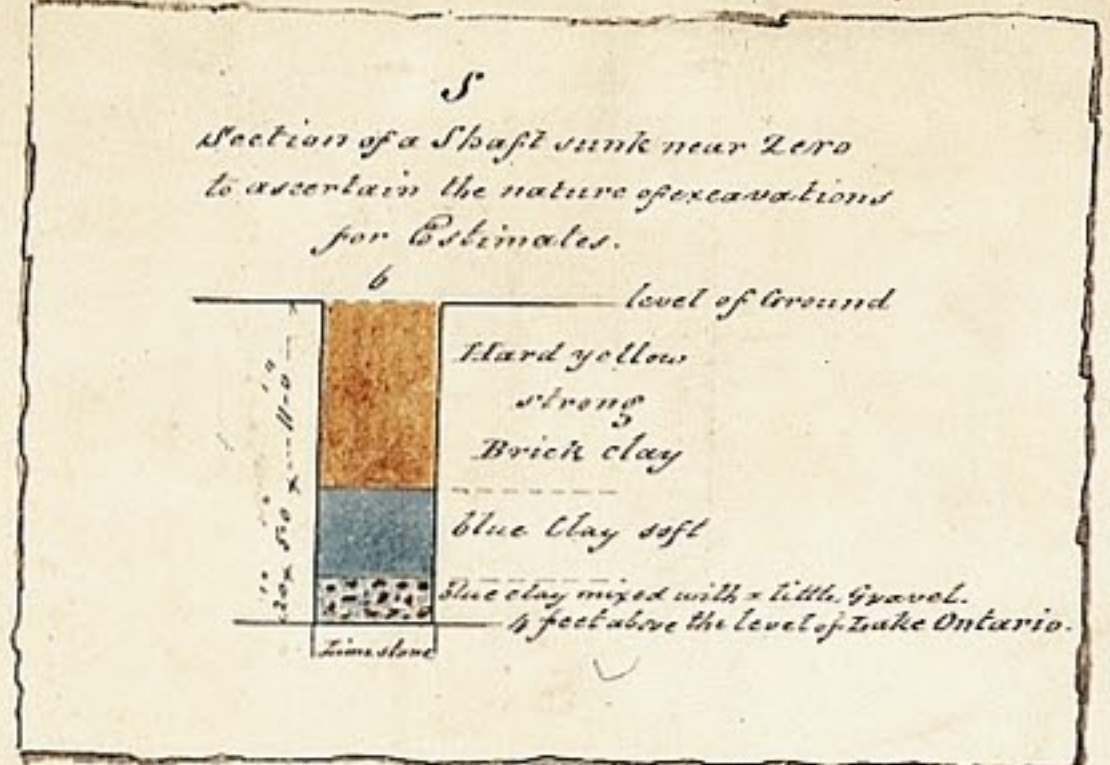 S
Section of a Shaft sunk near Zero
to ascertain the nature of excavations
for Estimates.
6
level of Ground
Hard yellow
strong
Brick clay
11-0
blue Clay soft
5.0
blue clay mixed with a little Gravel.
4 feet above the level of Lake Ontario.
Lime stone